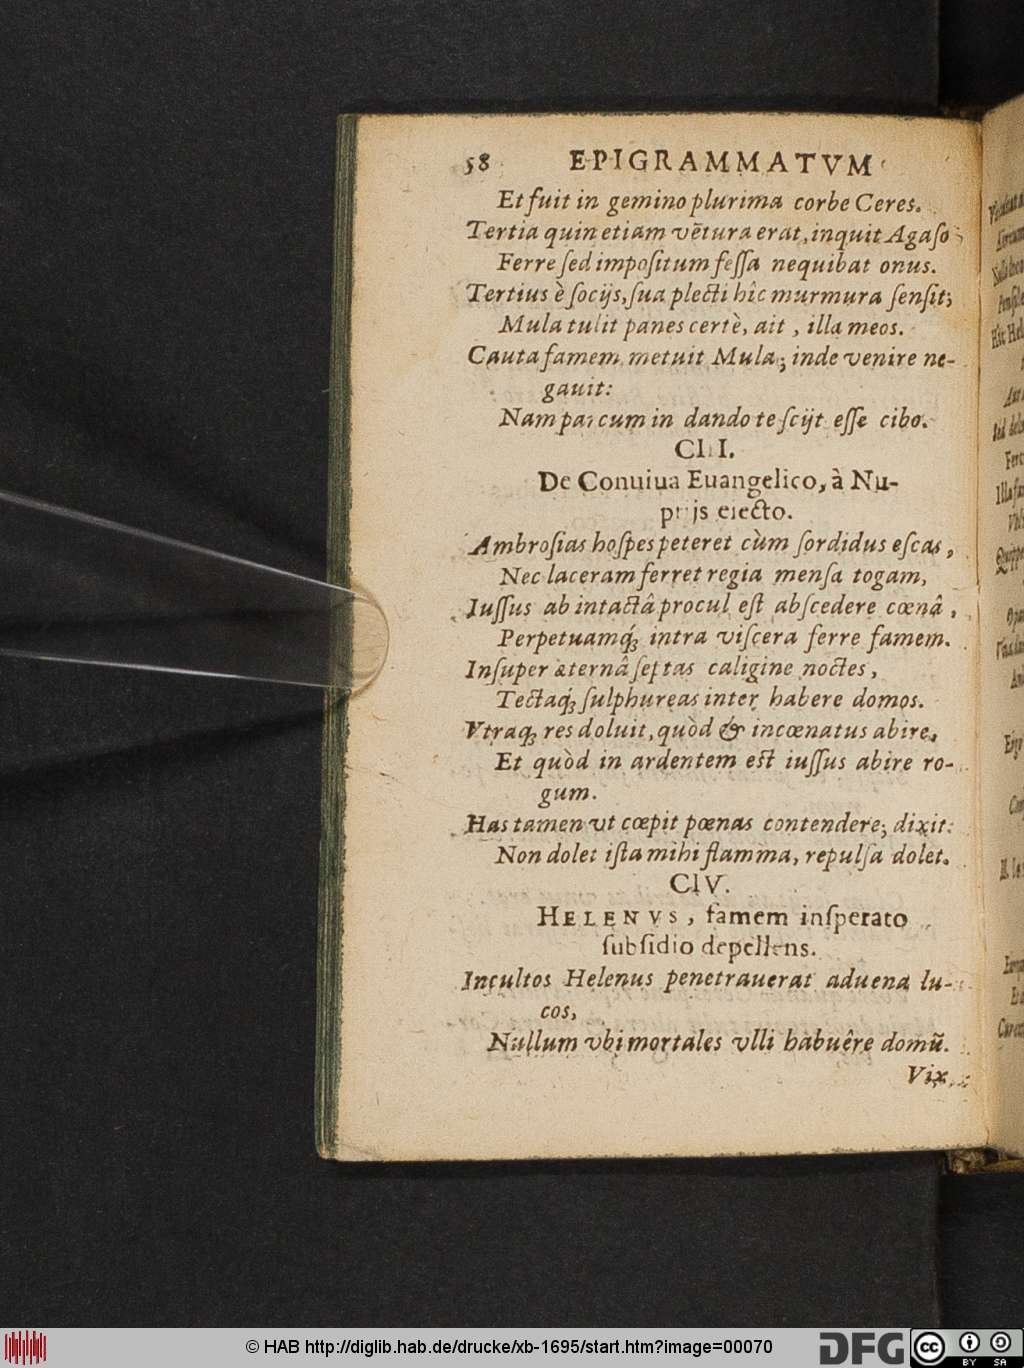 58 EPIGRAMMATVM
Et fuit in gemino plurima corbe Ceres.
Tertia quin etiam vẽtura erat, inquit Agaso
Ferre sed impositum fessa nequibat onus.
Tertius è socijs, sua plecti hîc murmura sensit;
Mula tulit panes certè, ait, illa meos.
Cauta famem metuit Mula; inde venire ne-
gauit:
Nam parcum in dando te scijt esse cibo.
CIII.
De Conuiua Euangelico, à Nu-
ptijs eiecto.
Ambrosias hospes peteret cùm sordidus escas,
Nec laceram ferret regia mensa togam,
Iussus ab intactâ procul est abscedere cœnâ,
Perpetuamq́; intra viscera ferre famem.
Insuper æternâ septas caligine noctes,
Tectaq́; sulphureas inter habere domos.
Vtraq; res doluit, quòd & incœnatus abire,
Et quòd in ardentem est iussus abire ro-
gum.
Has tamen vt cœpit pœnas contendere; dixit:
Non dolet ista mihi flamma, repulsa dolet.
CIV.
HELENVS, famem insperato
subsidio depellens.
Incultos Helenus penetrauerat aduena lu-
cos,
Nullum vbi mortales vlli habuêre domũ.
Vix
© HAB http://diglib.hab.de/drucke/xb-1695/start.htm?image=00070
DFG
cc BY SA